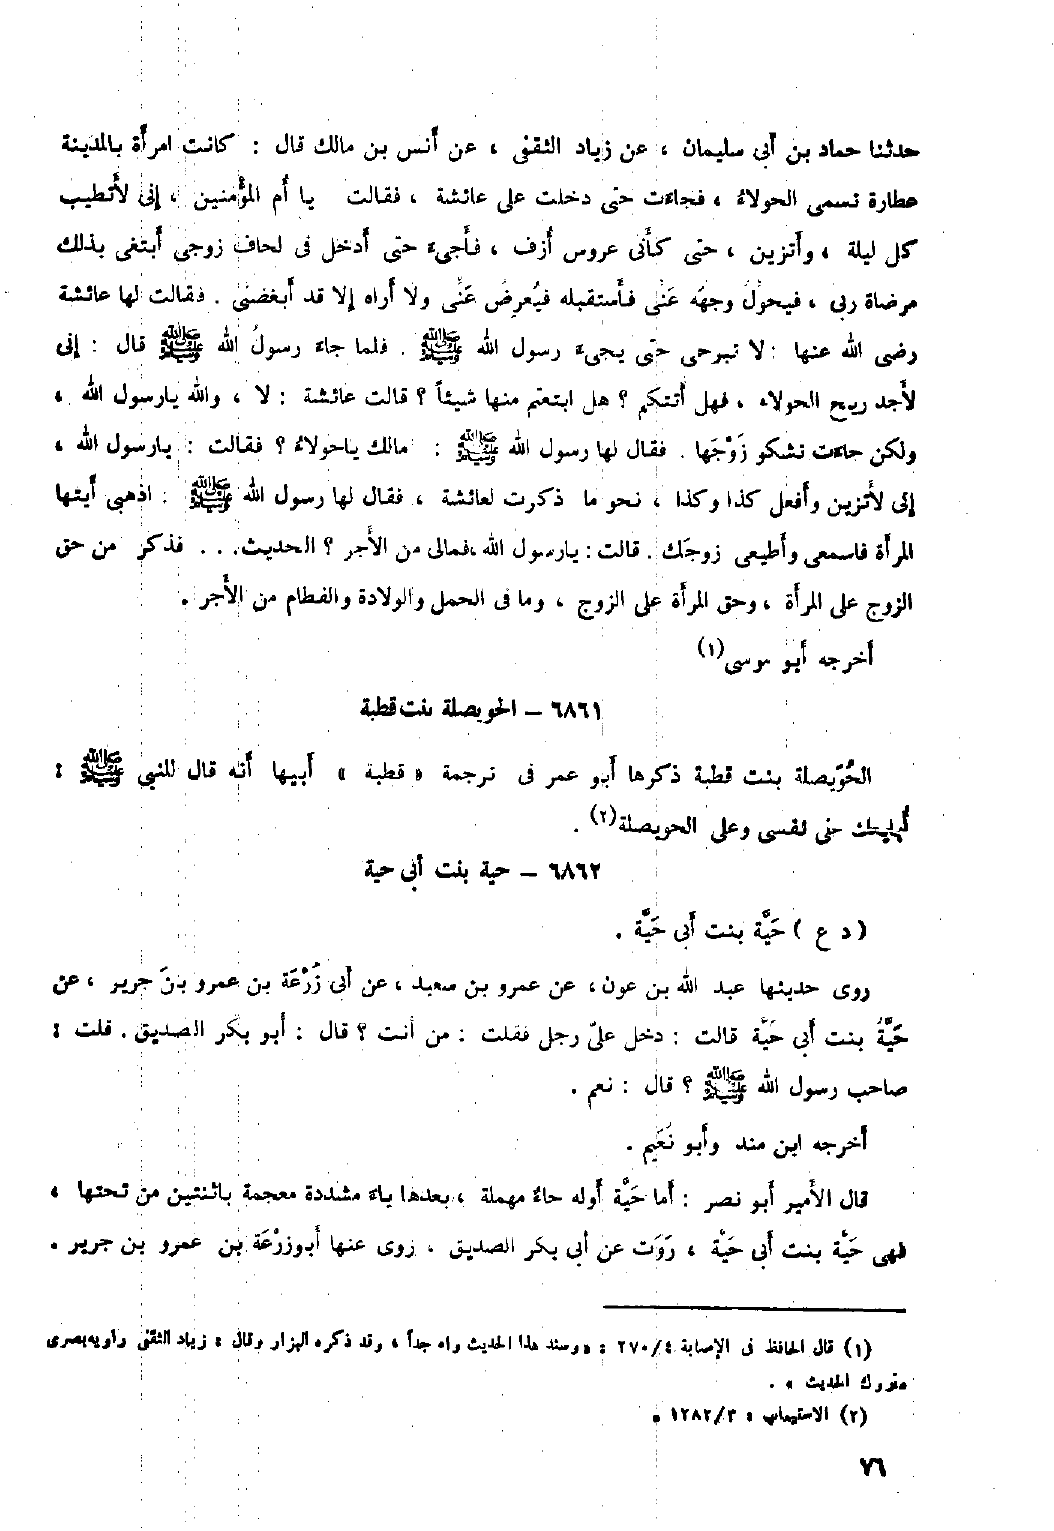 حدثنا حماد بن أبى سليمان ، عن زياد الثقفى ، عن أنس بن مالك قال : كانت امرأة بالمدينة
عطارة تسمى الحولاءُ ، فجاءَت حتى دخلت على عائشة ، فقالت يا أم المؤمنين ، إنى لأَتطيب
كل ليلة ، وأتزين ، حتى كأَنى عروس أُزف ، فأَجىءُ حتى أدخل فى لحاف زوجى أبتغى بذلك
مرضاة ربى ، فيحولُ وجهَه عَنى فأَستقبله فيُعرِضُ عَنى ولا أراه إلا قد أبغضنى . فقالت لها عائشة
رضى الله عنها : لا تبرحى حتى يجىء رسول الله ﷺ . فلما جاءَ رسولُ الله ﷺ قال : إنى
لأَجد ريح الحولاء ، فهل أتتكم ؟ هل ابتعتم منها شيئاً ؟ قالت عائشة : لا ، والله يارسول الله ،
ولكن جاءَت تشكو زَوْجَها . فقال لها رسول الله ﷺ : مالك ياحولاءُ ؟ فقالت : يارسول الله ،
إنى لأَتزين وأفعل كذا وكذا ، نحو ما ذكرت لعائشة ، فقال لها رسول الله ﷺ . اذهبى أيتها
المرأة فاسمعى وأطيعى زوجَك . قالت : يارسول الله ،فمالى من الأَجر ؟ الحديث. . . فذكر من حق
الزوج على المرأة ، وحق المرأة على الزوج ، وما فى الحمل والولادة والفطام من الأَجر .
أخرجه أبو موسى(١)
٦٨٦١ – الحويصلة بنت قطبة
الحُوَيصلة بنت قطبة ذكرها أبو عمر فى ترجمة « قطبة » أبيها أنه قال للنبى ﷺ :
أُبايعك على نفسى وعلى الحويصلة(٢) .
٦٨٦٢ – حية بنت أبى حية
( د ع ) حَيَّة بنت أبى حَيَّة .
روى حديثها عبد الله بن عون، عن عمرو بن سعيد ، عن أبى زُرْعَة بن عمرو بن جرير ، عن
حَيَّةُ بنت أبى حَيَّة قالت : دخل علىّ رجل فقلت : من أنت ؟ قال : أبو بكر الصديق . قلت :
صاحب رسول الله ﷺ ؟ قال : نعم .
أخرجه ابن منده وأبو نُعَيم .
قال الأَمير أبو نصر : أما حَيَّة أوله حاءٌ مهملة ، بعدها ياءٌ مشددة معجمة باثنتين من تحتها ،
فهى حَيَّة بنت أبى حَيَّة ، رَوَت عن أبى بكر الصديق . روى عنها أبوزرْعَة بن عمرو بن جرير .
(١) قال الحافظ فى الإصابة ٤/٢٧٠ : «وسند هذا الحديث واه جداً ، وقد ذكره البزار وقال : زياد الثقفى راويه بصرى
متروك الحديث » .
(٢) الاستيعاب : ٣/١٢٨٢ .
٧٦